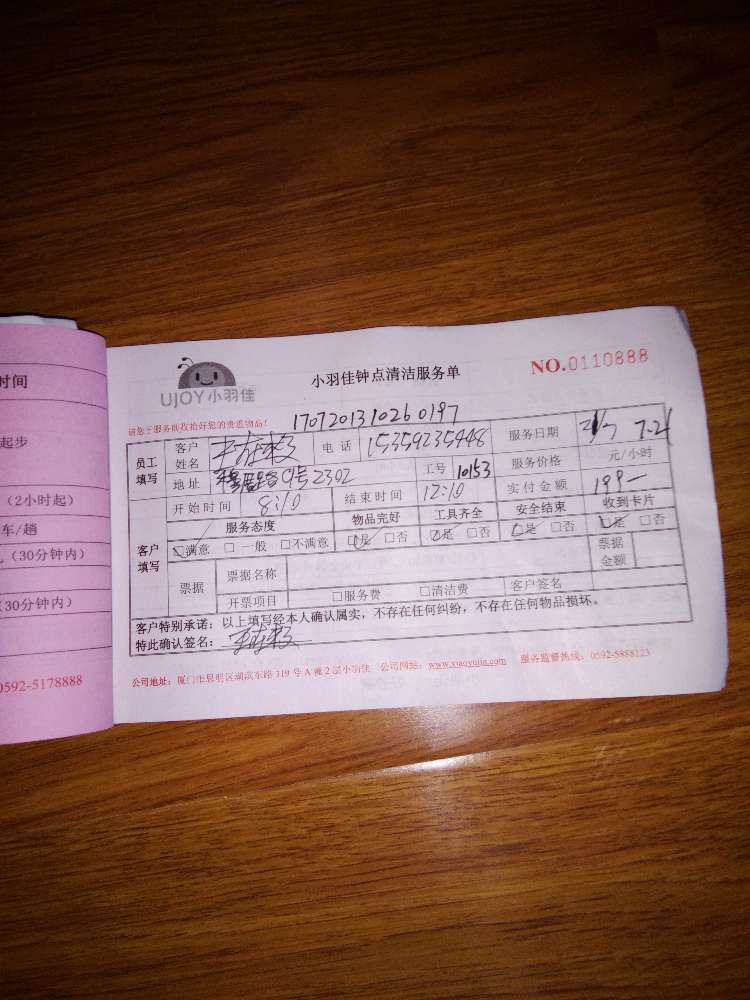 时间
起步
（2小时起）
车/趟
（30分钟内）
（30分钟内）
0592-5178888
UJOY小羽佳
小羽佳钟点清洁服务单
NO.0110888
请您于服务前收拾好您的贵重物品！
170720131026 0197
员工填写
客户姓名 电话 15359235448 服务日期 7.21
地址 91号2302 工号 10153 服务价格 元/小时
开始时间 8:10 结束时间 12:10 实付金额 199-
客户填写
服务态度 物品完好 工具齐全 安全结束 收到卡片
☑满意 □一般 □不满意 ☑是 □否 ☑是 □否 ☑是 □否 ☑是 □否
票据 票据名称 票据金额
开票项目 □服务费 □清洁费 客户签名
客户特别承诺：以上填写经本人确认属实，不存在任何纠纷，不存在任何物品损坏。
特此确认签名：
公司地址：厦门市思明区湖滨东路319号A幢2层小羽佳 公司网站：www.xiaoyujia.com 服务监督热线：0592-5888123